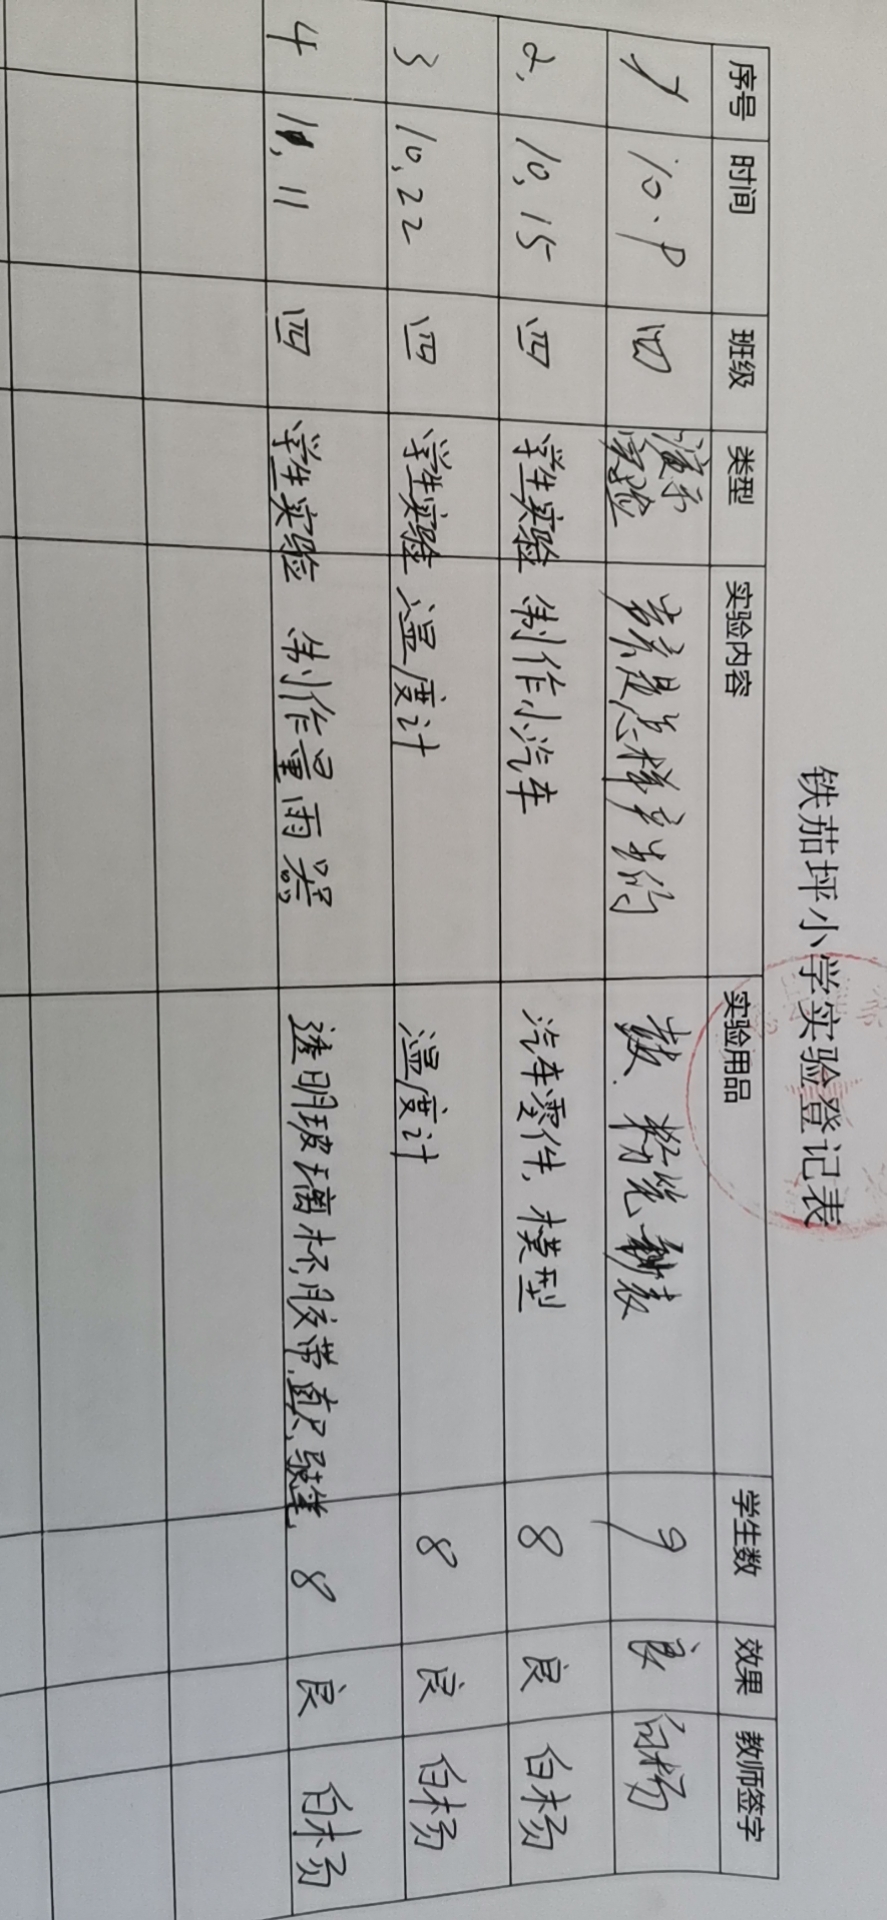 铁茄坪小学实验登记表
序号 时间 班级 类型 实验内容 实验用品 学生数 效果 教师签字
1 10.9 四 演示实验 声音是怎样产生的 鼓、粉笔 9 良 白杨
2, 10,15 四 学生实验 制作小汽车 汽车零件,模型 8 良 白杨
3 10,22 四 学生实验 温度计 温度计 8 良 白杨
4 11,11 四 学生实验 制作量雨器 透明玻璃杯,胶带,直尺, 8 良 白杨